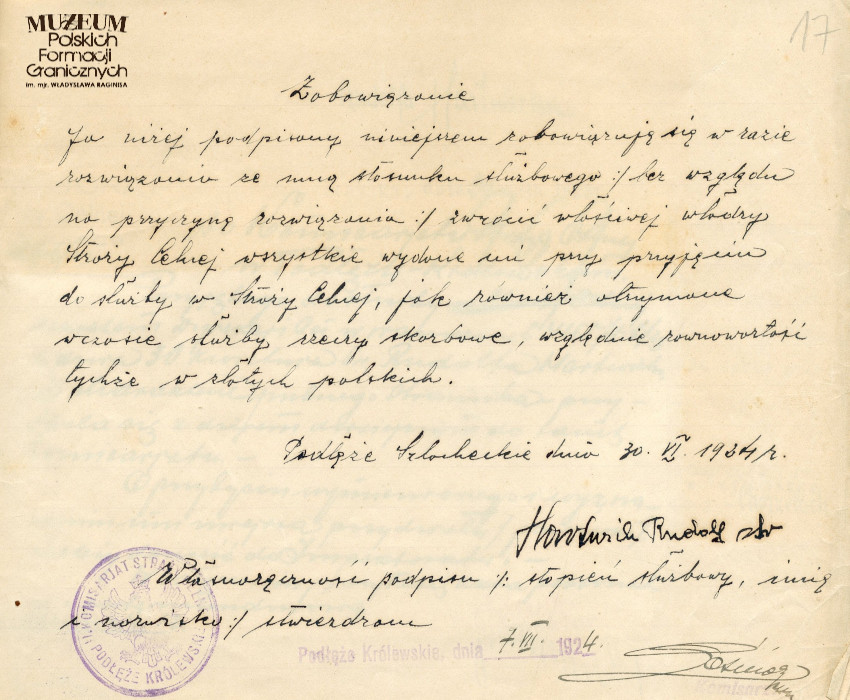 MUZEUM
Polskich
Formacji
Granicznych
im. mjr. WŁADYSŁAWA RAGINISA
17
Zobowiązanie
Ja niżej podpisany niniejszem zobowiązuję się w razie
rozwiązania ze mną stosunku służbowego :/ bez względu
na przyczynę rozwiązania :/ zwrócić właściwej władzy
Straży Celnej wszystkie wydane mi przy przyjęciu
do służby w Straży Celnej, jak również otrzymane
wczasie służby rzeczy skarbowe, względnie równowartość
tychże w złotych polskich.
Podłęże Szlacheckie dnia 30. VI 1924 r.
Rudolf
Własnoręczność podpisu /: stopień służbowy, imię
i nazwisko :/ stwierdzam
Podłęże Królewskie, dnia 7. VII. 1924.
KOMISARJAT STRAŻY CELNEJ
PODŁĘŻE KRÓLEWSKIE